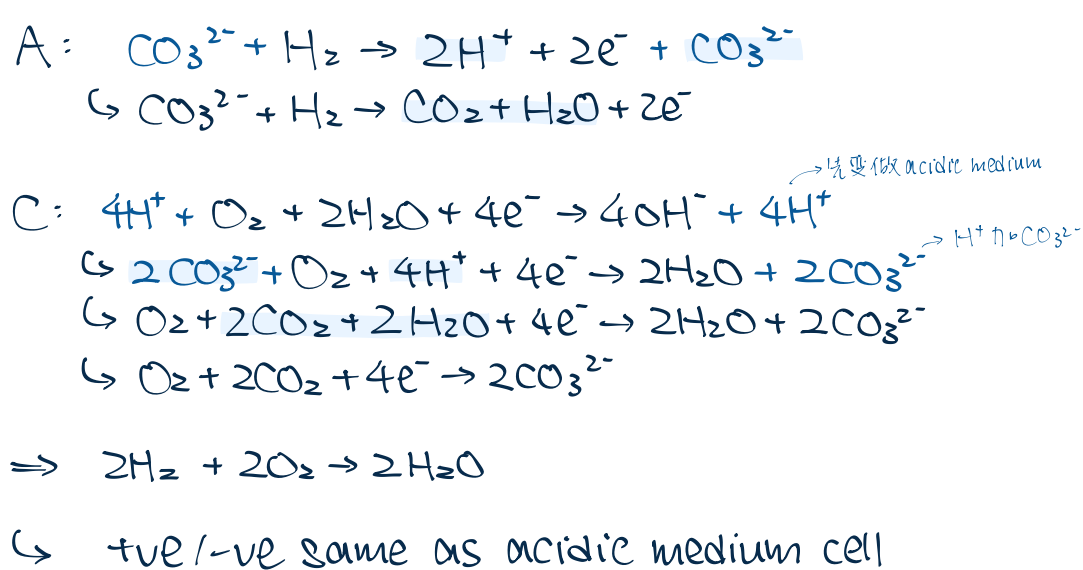 A: CO₃²⁻ + H₂ → 2H⁺ + 2e⁻ + CO₃²⁻
↳ CO₃²⁻ + H₂ → CO₂ + H₂O + 2e⁻
→ 先變做 acidic medium
C: 4H⁺ + O₂ + 2H₂O + 4e⁻ → 4OH⁻ + 4H⁺
→ H⁺ 加 CO₃²⁻
↳ 2CO₃²⁻ + O₂ + 4H⁺ + 4e⁻ → 2H₂O + 2CO₃²⁻
↳ O₂ + 2CO₂ + 2H₂O + 4e⁻ → 2H₂O + 2CO₃²⁻
↳ O₂ + 2CO₂ + 4e⁻ → 2CO₃²⁻
⇒ 2H₂ + 2O₂ → 2H₂O
↳ +ve/-ve same as acidic medium cell